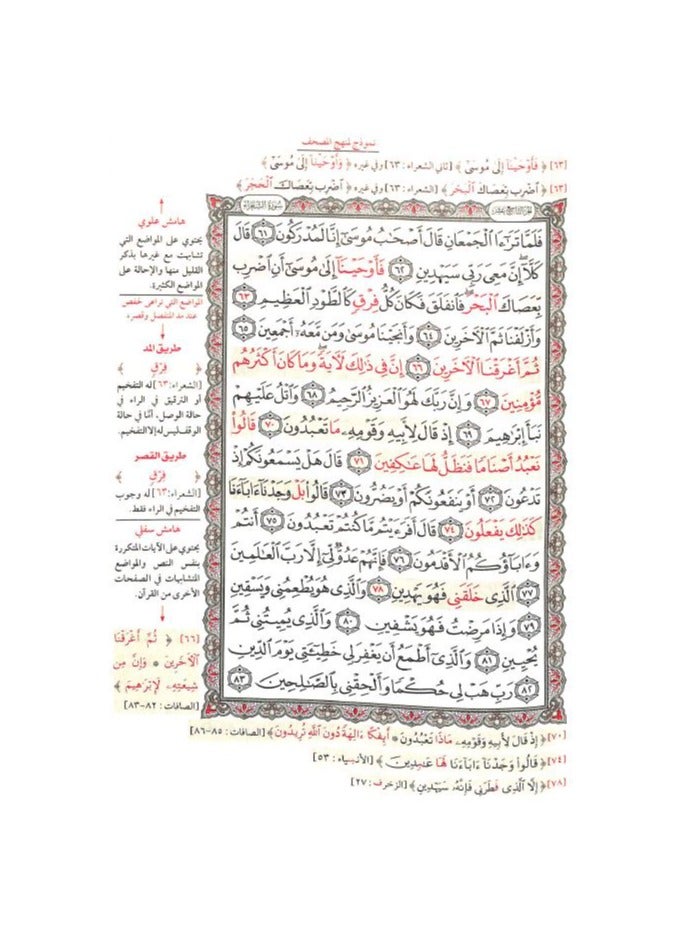 نموذج لمنهج المصحف
[٦٣] ﴿ فَأَوْحَيْنَا إِلَىٰ مُوسَىٰ ﴾ [ثاني الشعراء : ٦٣] وفي غيره ﴿ وَأَوْحَيْنَا إِلَىٰ مُوسَىٰ ﴾
[٦٣] ﴿ اضْرِب بِعَصَاكَ الْبَحْرَ ﴾ [الشعراء : ٦٣] وفي غيره ﴿ اضْرِب بِعَصَاكَ الْحَجَرَ ﴾
سُورَةُ الشُّعَرَاءِ
الجزء التاسع عشر
فَلَمَّا تَرَٰٓءَا ٱلْجَمْعَانِ قَالَ أَصْحَٰبُ مُوسَىٰٓ إِنَّا لَمُدْرَكُونَ ٦١ قَالَ
كَلَّآ إِنَّ مَعِىَ رَبِّى سَيَهْدِينِ ٦٢ فَأَوْحَيْنَآ إِلَىٰ مُوسَىٰٓ أَنِ ٱضْرِب
بِّعَصَاكَ ٱلْبَحْرَ فَٱنفَلَقَ فَكَانَ كُلُّ فِرْقٍ كَٱلطَّوْدِ ٱلْعَظِيمِ ٦٣
وَأَزْلَفْنَا ثَمَّ ٱلْءَاخَرِينَ ٦٤ وَأَنجَيْنَا مُوسَىٰ وَمَن مَّعَهُۥٓ أَجْمَعِينَ ٦٥
ثُمَّ أَغْرَقْنَا ٱلْءَاخَرِينَ ٦٦ إِنَّ فِى ذَٰلِكَ لَءَايَةً وَمَا كَانَ أَكْثَرُهُم
مُّؤْمِنِينَ ٦٧ وَإِنَّ رَبَّكَ لَهُوَ ٱلْعَزِيزُ ٱلرَّحِيمُ ٦٨ وَٱتْلُ عَلَيْهِمْ
نَبَأَ إِبْرَٰهِيمَ ٦٩ إِذْ قَالَ لِأَبِيهِ وَقَوْمِهِۦ مَا تَعْبُدُونَ ٧٠ قَالُوا۟
نَعْبُدُ أَصْنَامًا فَنَظَلُّ لَهَا عَٰكِفِينَ ٧١ قَالَ هَلْ يَسْمَعُونَكُمْ إِذْ
تَدْعُونَ ٧٢ أَوْ يَنفَعُونَكُمْ أَوْ يَضُرُّونَ ٧٣ قَالُوا۟ بَلْ وَجَدْنَآ ءَابَآءَنَا
كَذَٰلِكَ يَفْعَلُونَ ٧٤ قَالَ أَفَرَءَيْتُم مَّا كُنتُمْ تَعْبُدُونَ ٧٥ أَنتُمْ
وَءَابَآؤُكُمُ ٱلْأَقْدَمُونَ ٧٦ فَإِنَّهُمْ عَدُوٌّ لِّىٓ إِلَّا رَبَّ ٱلْعَٰلَمِينَ
٧٧ ٱلَّذِى خَلَقَنِى فَهُوَ يَهْدِينِ ٧٨ وَٱلَّذِى هُوَ يُطْعِمُنِى وَيَسْقِينِ
٧٩ وَإِذَا مَرِضْتُ فَهُوَ يَشْفِينِ ٨٠ وَٱلَّذِى يُمِيتُنِى ثُمَّ
يُحْيِينِ ٨١ وَٱلَّذِىٓ أَطْمَعُ أَن يَغْفِرَ لِى خَطِيٓـَٔتِى يَوْمَ ٱلدِّينِ
٨٢ رَبِّ هَبْ لِى حُكْمًا وَأَلْحِقْنِى بِٱلصَّٰلِحِينَ ٨٣
هامش علوي
يحتوي على المواضع التي
تشابهت مع غيرها بذكر
القليل منها والإحالة على
المواضع الكثيرة.
المواضع التي تراعى لحفص
عند مد المنفصل وقصره
طريق المد
﴿ فِرْقٍ ﴾
[الشعراء: ٦٣] له التفخيم
أو الترقيق في الراء في
حالة الوصل، أمَّا في حالة
الوقف ليس له إلا التفخيم.
طريق القصر
﴿ فِرْقٍ ﴾
[الشعراء: ٦٣] له وجوب
التفخيم في الراء فقط.
هامش سفلي
يحتوي على الآيات المتكررة
بنفس النص والمواضع
المتشابهات في الصفحات
الأخرى من القرآن.
[٦٦] ﴿ ثُمَّ أَغْرَقْنَا
الْآخَرِينَ * وَإِنَّ مِن
شِيعَتِهِ لَإِبْرَاهِيمَ ﴾
[الصافات : ٨٢-٨٣]
[٧٠] ﴿ إِذْ قَالَ لِأَبِيهِ وَقَوْمِهِ مَاذَا تَعْبُدُونَ * أَئِفْكًا ءَالِهَةً دُونَ اللَّهِ تُرِيدُونَ ﴾ [الصافات : ٨٥-٨٦]
[٧٤] ﴿ قَالُوا وَجَدْنَا ءَابَاءَنَا لَهَا عَابِدِينَ ﴾ [الأنبياء : ٥٣]
[٧٨] ﴿ إِلَّا الَّذِي فَطَرَنِي فَإِنَّهُ سَيَهْدِينِ ﴾ [الزخرف : ٢٧]